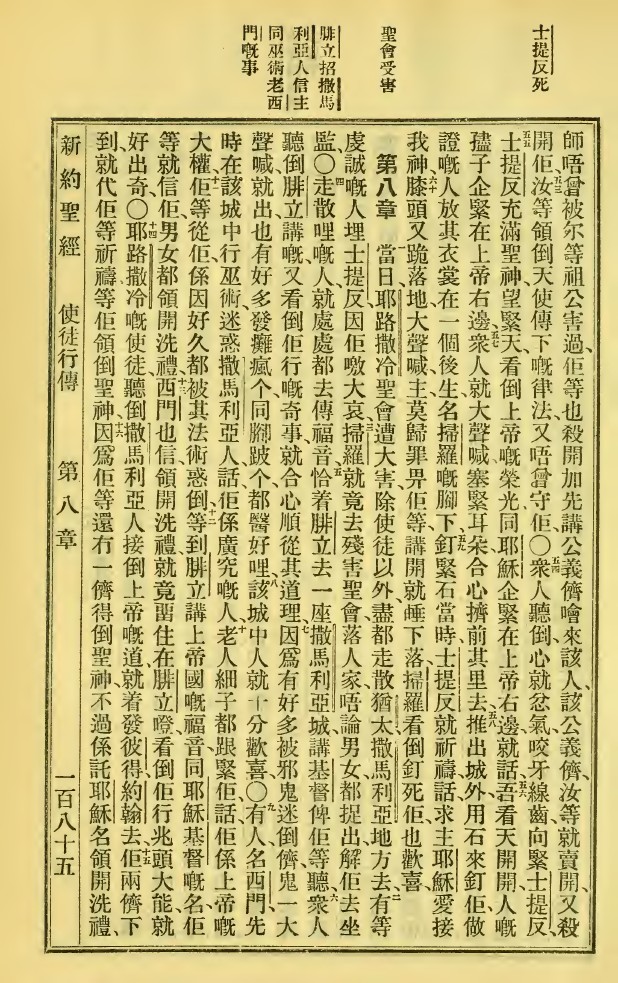 士提反死
聖會受害
腓立招撒馬
利亞人信主
同巫術老西
門嘅事
師唔曾被尔等祖公害過佢等也殺開加先講公義儕噲來該人該公義儕汝等就賣開又殺
開佢汝等領倒天使傳下嘅律法又唔曾守佢〇衆人聽倒心就忿氣咬牙線齒向緊士提反
士提反充滿聖神望緊天看倒上帝嘅榮光同耶穌企緊在上帝右邊就話吾看天開開人嘅
孻子企緊在上帝右邊衆人就大聲喊塞緊耳朵合心擠前其里去推出城外用石來釘佢做
證嘅人放其衣裳在一個後生名掃羅嘅腳下釘緊石當時士提反就祈禱話求主耶穌愛接
我神膝頭又跪落地大聲喊主莫歸罪畀佢等講開就睡下落掃羅看倒釘死佢也歡喜
第八章 當日耶路撒冷聖會遭大害除使徒以外盡都走散猶太撒馬利亞地方去有等
虔誠嘅人埋士提反因佢噭大哀掃羅就竟去殘害聖會落人家唔論男女都捉出解佢去坐
監〇走散哩嘅人就處處都去傳福音恰着腓立去一座撒馬利亞城講基督俾佢等聽衆人
聽倒腓立講嘅又看倒佢行嘅奇事就合心順從其道理因爲有好多被邪鬼迷倒儕鬼一大
聲喊就出也有好多發癱瘋个同腳跛个都醫好哩該城中人就十分歡喜〇有人名西門先
時在該城中行巫術迷惑撒馬利亞人話佢係廣究嘅人老人細子都跟緊佢話佢係上帝嘅
大權佢等從佢係因好久都被其法術惑倒等到腓立講上帝國嘅福音同耶穌基督嘅名佢
等就信佢男女都領開洗禮西門也信領開洗禮就竟畱住在腓立嶝看倒佢行兆頭大能就
好出奇〇耶路撒冷嘅使徒聽倒撒馬利亞人接倒上帝嘅道就着發彼得約翰去佢兩儕下
到就代佢等祈禱等佢領倒聖神因爲佢等還冇一儕得倒聖神不過係託耶穌名領開洗禮
新約聖經 使徒行傳 第八章 一百八十五